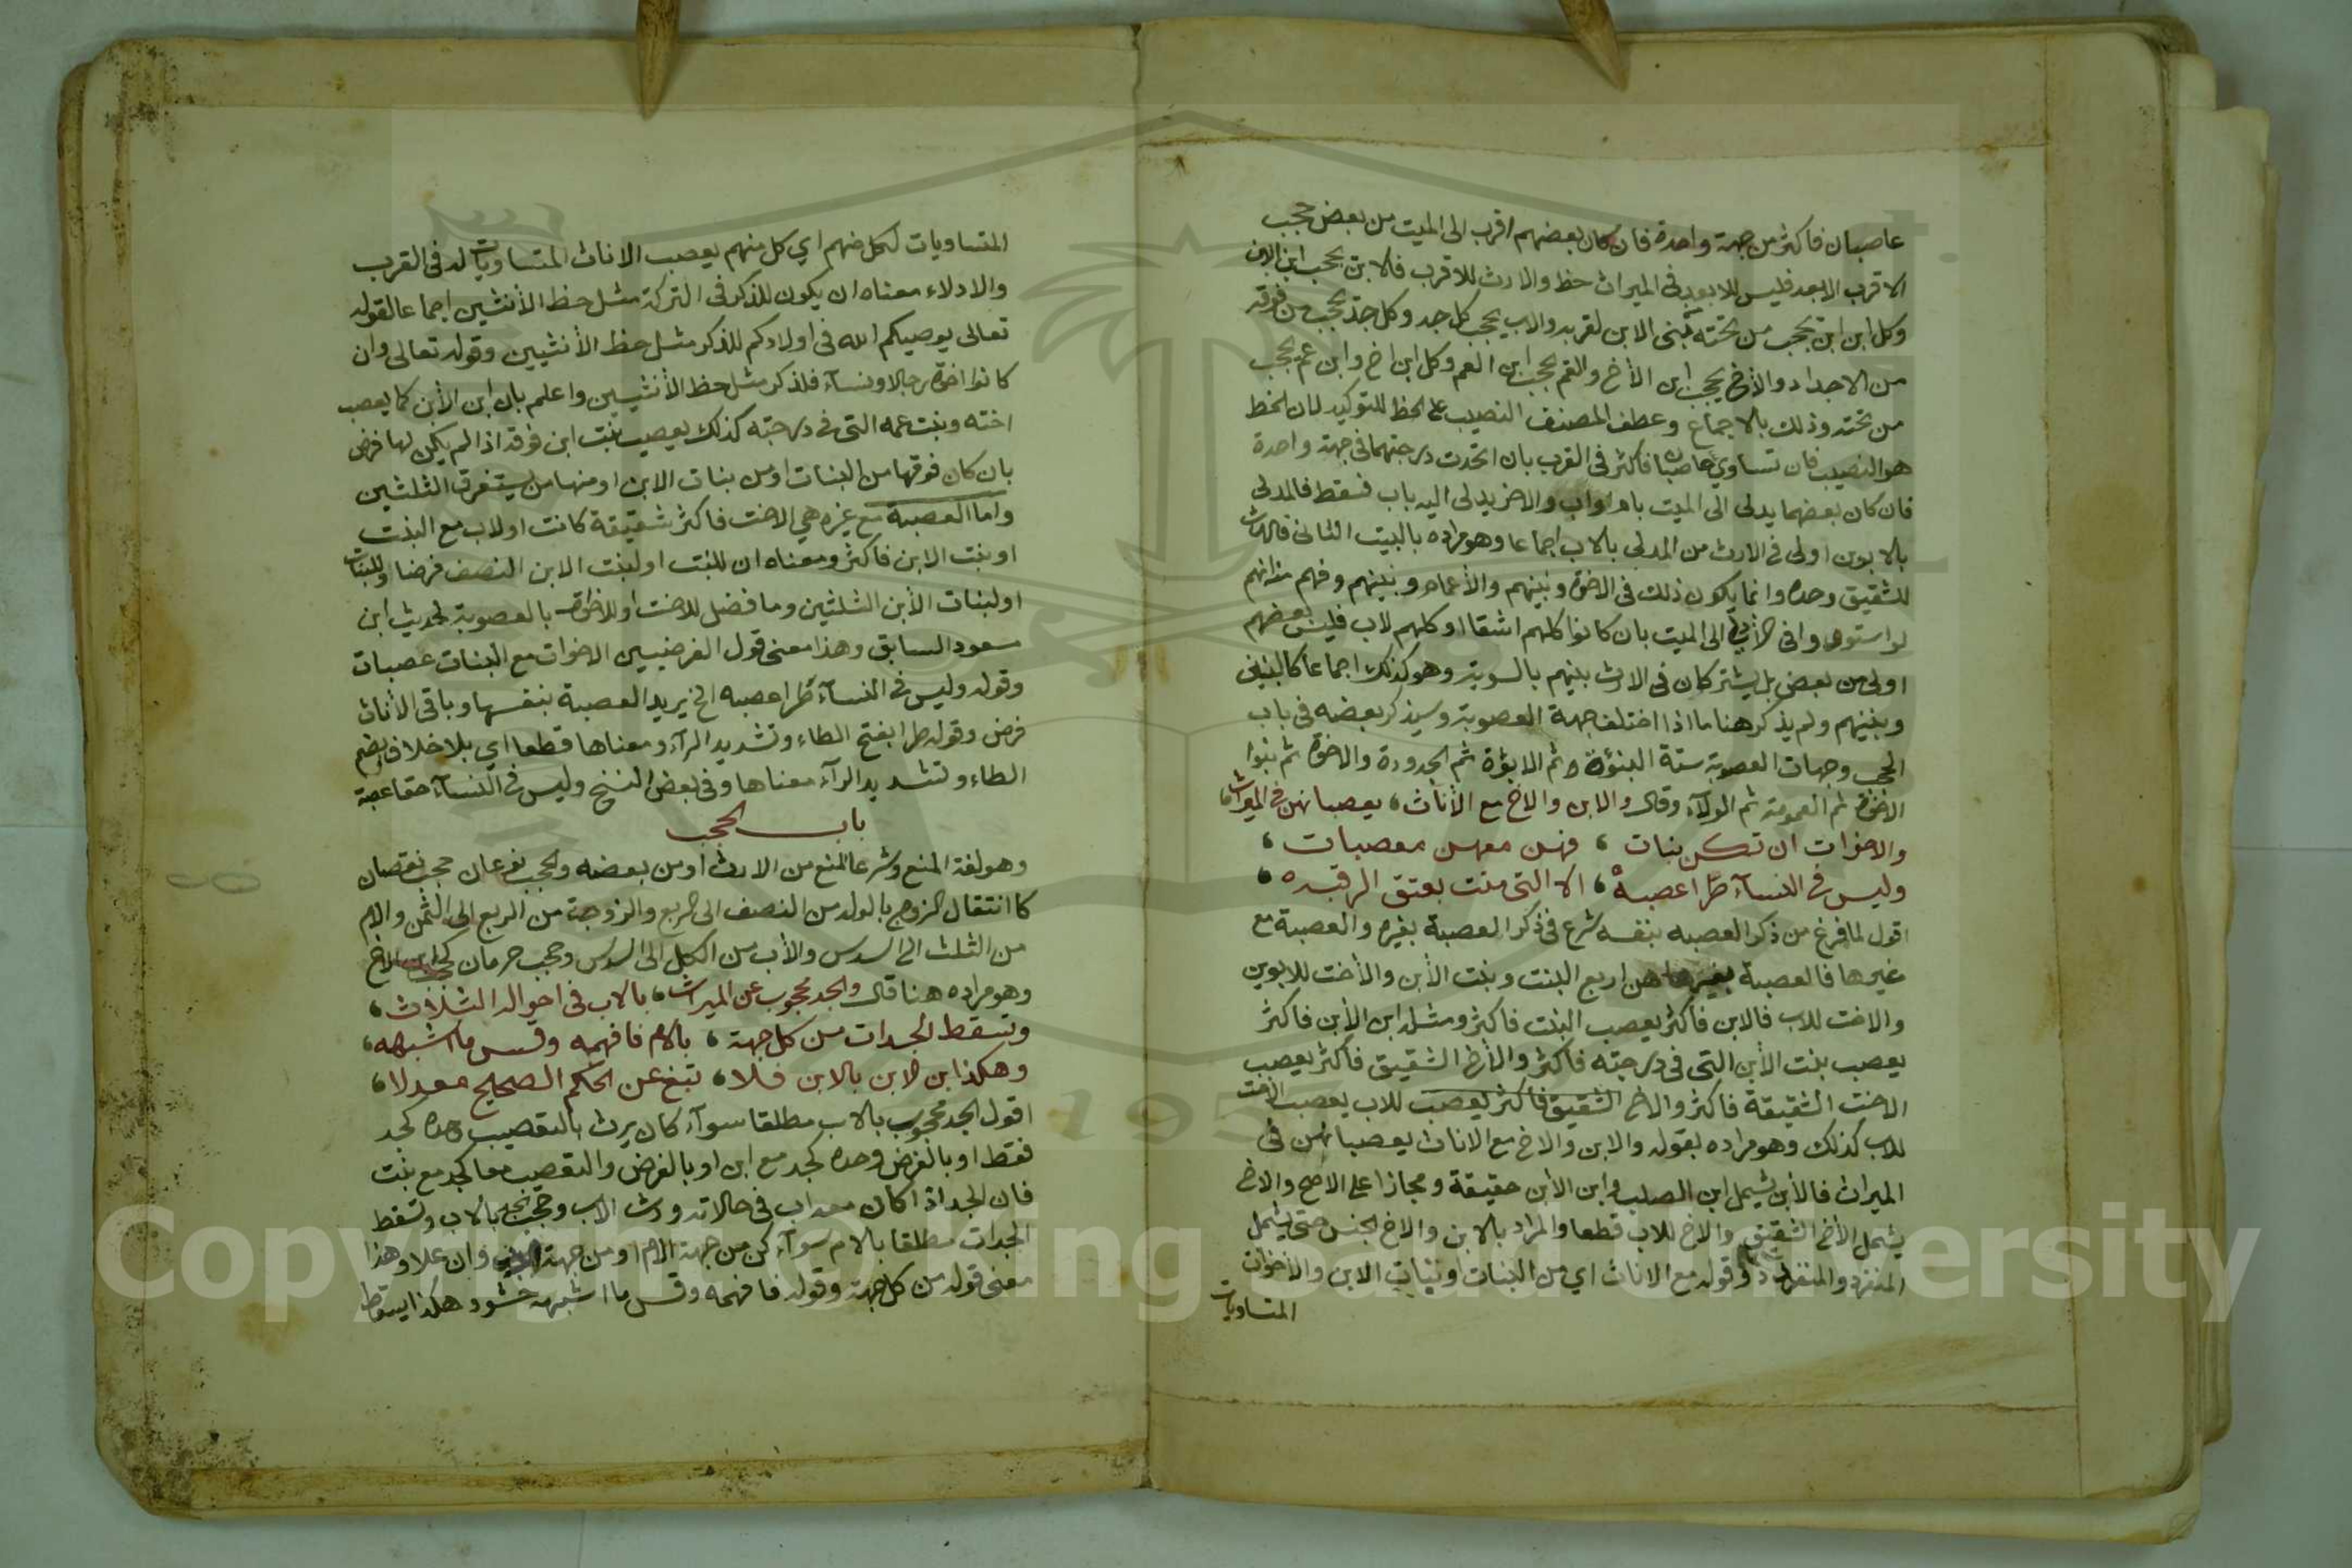 عاصبان فاكثر من جهة واحدة فان كان بعضهم اقرب الى الميت من بعض حجب
الاقرب الابعد فليس للابعد في الميراث حظ والارث للاقرب فالابن يحجب ابن الابن
وكل ابن ابن يحجب من تحته من بنى الابن لقربه والاب يحجب كل جد وكل جد يحجب من فوقه
من الاجداد والأخ يحجب ابن الأخ والعم يحجب ابن العم وكل ابن اخ وابن عم يحجب
من تحته وذلك بالاجماع وعطف المصنف النصيب على الحظ للتوكيد لان الحظ
هو النصيب فان تساوي عاصبان فاكثر في القرب بان اتحدت درجتهما في جهة واحدة
فان كان بعضهما يدلى الى الميت بام واب والاخر يدلى اليه باب فسقط فالمدلى
بالابوين اولى في الارث من المدلي بالاب اجماعا وهو مراده بالبيت الثانى فالارث
للشقيق وحده وانما يكون ذلك في الاخوة وبنيهم والأعمام وبنيهم وفهم منه انهم
لو استووا في الادلاء الى الميت بان كانوا كلهم اشقا او كلهم لاب فليس بعضهم
اولى من بعض بل يشتركان في الارث بينهم بالسوية وهو كذلك اجماعا كالبنين
وبنيهم ولم يذكر هنا ما اذا اختلف جهة العصوبة وسيذكر بعضه في باب
الحجب وجهات العصوبة ستة البنوة ثم الابوة ثم الجدودة والاخوة ثم بنوا
الاخوة ثم العمومة ثم الولاء وقال والابن والاخ مع الأناث، يعصبانهن في الميراث،
والاخوات ان تكن بنات ، فهن معهن معصبات ،
وليس في النسآء طرا عصبة، الا التي منت بعتق الرقبه ،
اقول لما فرغ من ذكر العصبه بنفسه شرع في ذكر العصبة بغيره والعصبة مع
غيرها فالعصبة بغيرها هن اربع البنت وبنت الأبن والأخت للابوين
والاخت للاب فالابن فاكثر يعصب البنت فاكثر ومثله ابن الأبن فاكثر
يعصب بنت الأبن التى فى درجته فاكثر والأخ الشقيق فاكثر يعصب
الاخت الشقيقة فاكثر والاخ الشقيق فاكثر يعصب للاب يعصب الاخت
للاب كذلك وهو مراده بقوله والابن والاخ مع الاناث يعصبانهن في
الميراث فالأبن يشمل ابن الصلب وابن الأبن حقيقة ومجازا على الاصح والاخ
يشمل الأخ الشقيق والاخ للاب قطعا والمراد بالابن والاخ الجنس حتى يشمل
المنفرد والمتعدد وقوله مع الاناث اي من البنات او بنات الابن والأخوات
المتساويات
المتساويات لكل منهم اي كل منهم يعصب الاناث المتساويات له في القرب
والادلاء معناه ان يكون للذكر في التركة مثل حظ الأنثيين اجماعا لقوله
تعالى يوصيكم الله في اولادكم للذكر مثل حظ الأنثيين وقوله تعالى وان
كانوا اخوة رجالا ونسآء فلذكر مثل حظ الأنثيين واعلم بان ابن الأبن كما يعصب
اخته وبنت عمه التي في درجته كذلك يعصب بنت ابن فوقه اذا لم يكن لها فرض
بان كان فوقها من البنات او من بنات الابن او منهما من يستغرق الثلثين
واما العصبة مع غيره هي الاخت فاكثر شقيقة كانت او لاب مع البنت
او بنت الابن فاكثر ومعناه ان للبنت او لبنت الابن النصف فرضا وللبنات
او لبنات الأبن الثلثين وما فضل للاخت او للاخوات بالعصوبة لحديث ابن
مسعود السابق وهذا معنى قول الفرضيين الاخوات مع البنات عصبات
وقوله وليس في النسآء طرا عصبه الخ يريد العصبة بنفسها وباقي الأناث
فرض وقوله طرا بفتح الطاء وتشديد الرآء ومعناها قطعا اي بلا خلاف وبضم
الطاء وتشديد الرآء معناها وفي بعض النسخ وليس في النسآء حقا عصبة
باب الحجب
وهو لغة المنع وشرعا المنع من الارث او من بعضه والحجب نوعان حجب نقصان
كانتقال الزوج بالولد من النصف الى الربع والزوجة من الربع الى الثمن والام
من الثلث الى السدس والأب من الكل الى السدس وحجب حرمان كحجب ابن الاخ
وهو مراده هنا قال والجد محجوب عن الميراث، بالاب في احواله الثلاث،
وتسقط الجدات من كل جهة ، بالام فافهمه وقس ما اشبهه،
وهكذا ابن الابن بالابن فلا، تبغ عن الحكم الصحيح معدلا،
اقول الجد محجوب بالاب مطلقا سوآء كان يرث بالتعصيب وحده كجد
فقط او بالفرض وحده كجد مع ابن او بالفرض والتعصيب معا كجد مع بنت
فان الجد اذا كان معه اب في حالاته ورث الاب وحجب الجد بالاب وتسقط
الجدات مطلقا بالام سوآء كن من جهة الام او من جهة وان علا وهذا
معنى قوله من كل جهة وقوله فافهمه وقس ما اشبهه حشو وهكذا يسقط
Copyright © King Saud University
1957